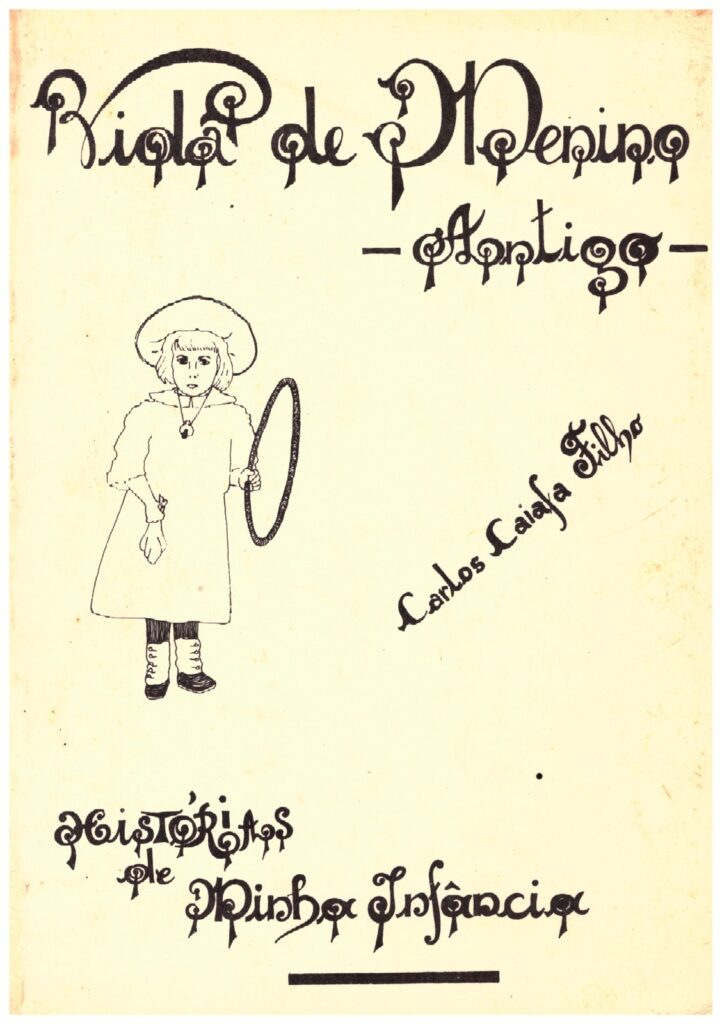 Vida de Menino
- Antigo -
Carlos Caiafa Filho
HISTÓRIAS
de
Minha Infância